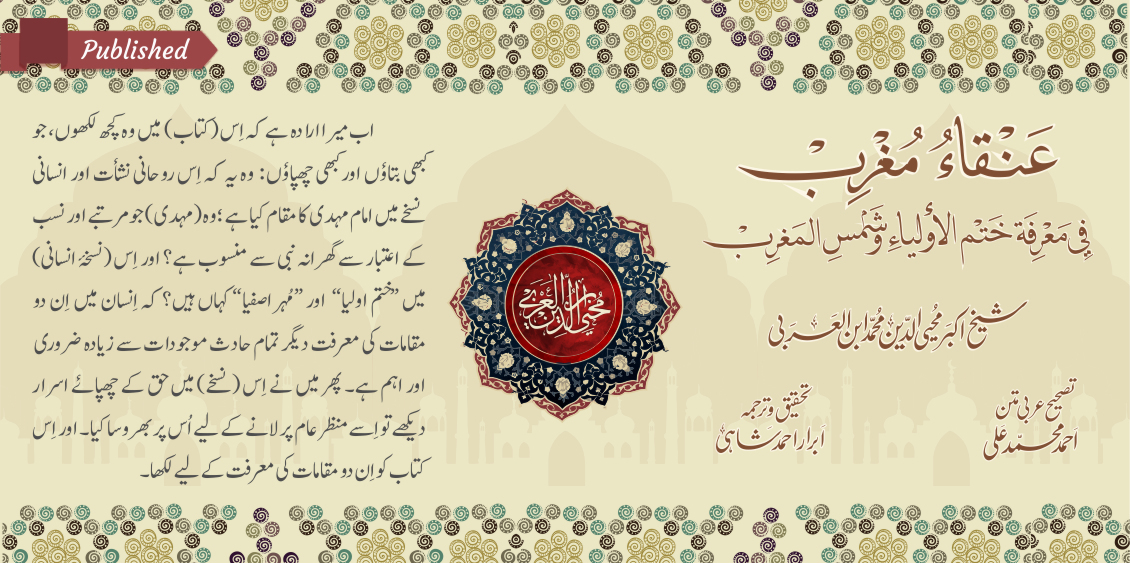 Published
عَنْقَاءُ مُغْرِب
فِي مَعْرِفَة خَتْم الأولياءِ وَشَمْسِ المَغْرِب
شیخ اکبر مُحیی الدّین مُحمّد ابن العَربی
تصحیح عربی متن
احمد محمّد علی
تحقیق و ترجمہ
ابرار احمد شاہی
مُحْيِي الدِّين ابنُ العَرَبي
اب میرا ارادہ ہے کہ اِس (کتاب) میں وہ کچھ لکھوں، جو
کبھی بتاؤں اور کبھی چھپاؤں: وہ یہ کہ اِس روحانی نشأت اور انسانی
نسخے میں امام مہدی کا مقام کیا ہے؛ وہ (مہدی) جو مرتبے اور نسب
کے اعتبار سے گھرانہ نبی سے منسوب ہے؟ اور اِس (نسخۂ انسانی)
میں ”ختم اولیا“ اور ”مُہر اصفیا“ کہاں ہیں؟ کہ اِنسان میں اِن دو
مقامات کی معرفت دیگر تمام حادث موجودات سے زیادہ ضروری
اور اہم ہے۔ پھر میں نے اِس (نسخے) میں حق کے چھپائے اسرار
دیکھے تو اِسے منظر عام پر لانے کے لیے اُس پر بھروسا کیا۔ اور اِس
کتاب کو اِن دو مقامات کی معرفت کے لیے لکھا۔